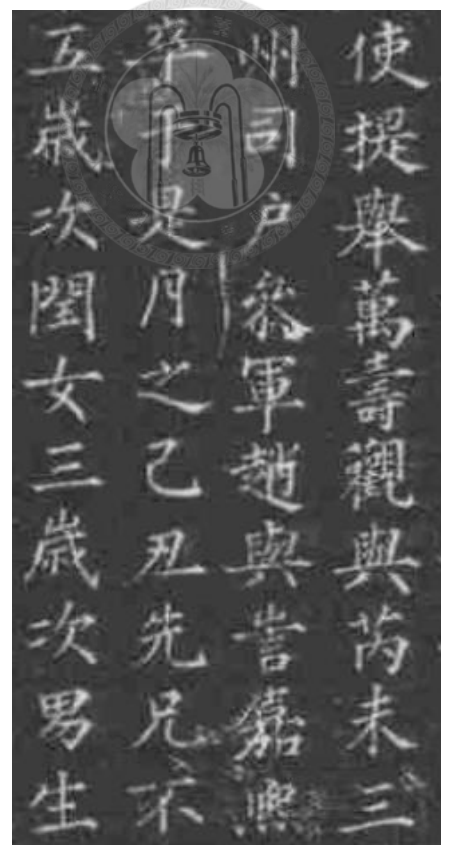 使提舉萬壽觀與芮未三
州司户叅軍趙與訔嘉熙
卒于是月之己丑先兄不
五歳次閨女三歳次男生